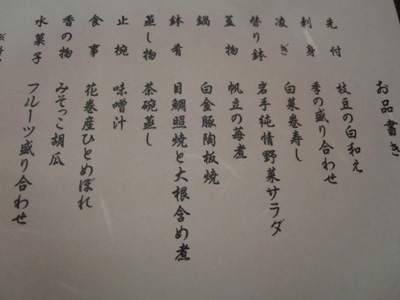 お品書き
先付 枝豆の白和え
刺身 季の盛り合わせ
凌ぎ 白菜巻寿し
替り鉢 岩手純情野菜サラダ
蓋物 帆立の苺煮
鍋 白金豚陶板焼
鉢肴 目鯛照焼と大根含め煮
蒸し物 茶碗蒸し
止椀 味噌汁
食事 花巻産ひとめぼれ
香の物 みそっこ胡瓜
水菓子 フルーツ盛り合わせ